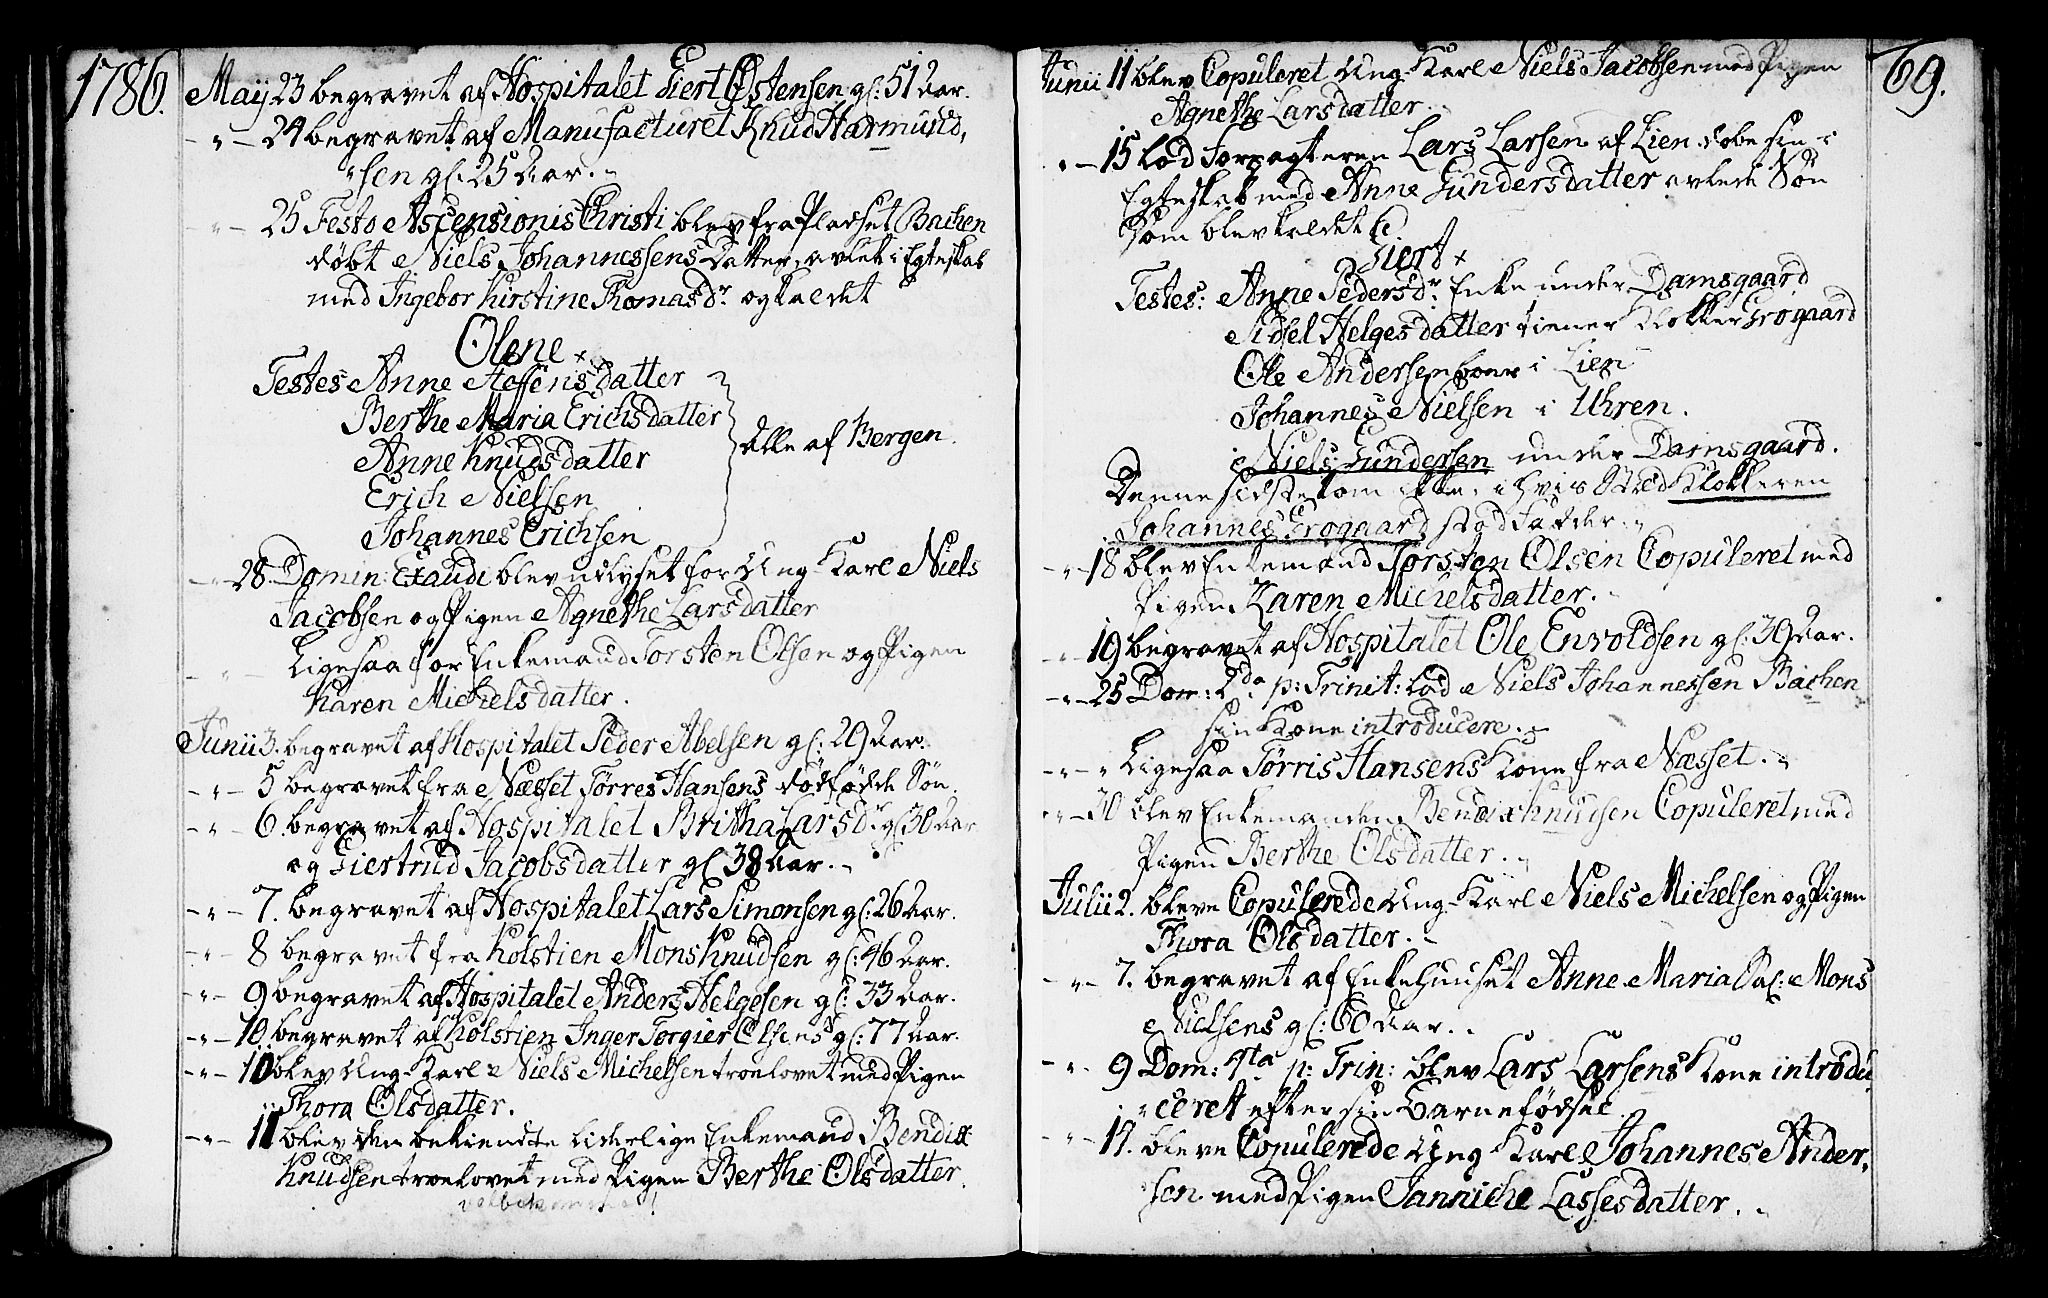 1786.
Maij 23 begravet af Hospitalet Giert Østensen gl: 51 Aar.
- " - 24 begravet af Manufacturet Knud Harmund,
"sen gl: 25 Aar. "
- " - 25 Festo Ascensionis Christi blev fra Pladset Bachen
døbt Niels Johannessens Datter, avlet i Egteskab
med Ingebor Kirstine Thomasdr. og kaldet
Olene +
Testes Anne Steffensdatter
Berthe Maria Erichsdatter
Anne Knudsdatter
Alle af Bergen.
Erich Nielsen
Johannes Erichsen
- " - 28. Domin: Exaudi blev udlyset for Ung-Karl Niels
Jacobsen og Pigen Agnethe Larsdatter
- " - Ligesaa for Enkemand Torsten Olsen og Pigen
Karen Michelsdatter.
Junii 3. begravet af Hospitalet Peder Abelsen gl: 29 Aar.
- " - 5 begravet fra Næsset Tørres Hansens dødfødde Søn.
- " - 6. begravet af Hospitalet Britha Larsdr. gl 30 Aar
og Giertrud Jacobsdatter gl 38 Aar. "
- " - 7. begravet af Hospitalet Lars Simonsen gl: 26 Aar.
- " - 8 begravet fra Kolstien Mons Knudsen gl: 46 Aar.
- " - 9 begravet af Hospitalet Anders Helgesen gl: 33 Aar.
- " - 10. begravet af Kolstien Inger Torgier Olsens gl: 77 Aar.
- " - 10 blev Ung-Karl Niels Michelsen troelovet med Pigen
Thora Olsdatter.
- " - 11 blev den bekiendte liderlige Enkemand Bendix
Knudsen troelovet med Pigen Berthe Olsdatter.
69.
Junii 11 blev Copuleret Ung-Karl Niels Jacobsen med Pigen
Agnethe Larsdatter.
" - 15 lod Forpagteren Lars Larsen af Lien døbe sin i
Egteskab med Anne Gundersdatter avlede Søn
som blev kaldet
Giert +
Testes: Anne Pedersdr. Enke under Damsgaard
Sidsel Helgesdatter tiener Klokker Grogaard
Ole Andersen boer i Lien
Johannes Nielsen i Uhren.
Niels Gundersen under Damsgaard.
Denne sidste kom ikke, i hvis Sted Klokkeren
Johannes Grogaard stod Fadder. "
- " - 18 blev Enkemand Torsten Olsen Copuleret med
Pigen Karen Michelsdatter. "
- " - 19 begravet af Hospitalet Ole Envoldsen gl: 39 Aar.
- " - 25 Dom: 2da p: Trinit: lod Niels Johannessen Bachen
sin Kone introducere. "
- " - " Ligesaa Tørris Hansens Kone fra Næsset. "
- " - 30 blev Enkemanden Bendix Knudsen Copuleret med
Pigen Berthe Olsdatter. "
Julii 2. bleve Copulerede Ung-Karl Niels Michelsen og Pigen
Thora Olsdatter. "
- " - 7. begravet af Enkehuuset Anne Maria Sal: Mons
Nielsens gl: 60 Aar. "
- " - 9 Dom: 4ta p: Trin: blev Lars Larsens Kone introdu
"ceret efter sin Barnefødsel.
- " - 17. bleve Copulerede Ung-Karl Johannes Ander,
"sen med Pigen Janniche Lassesdatter. "